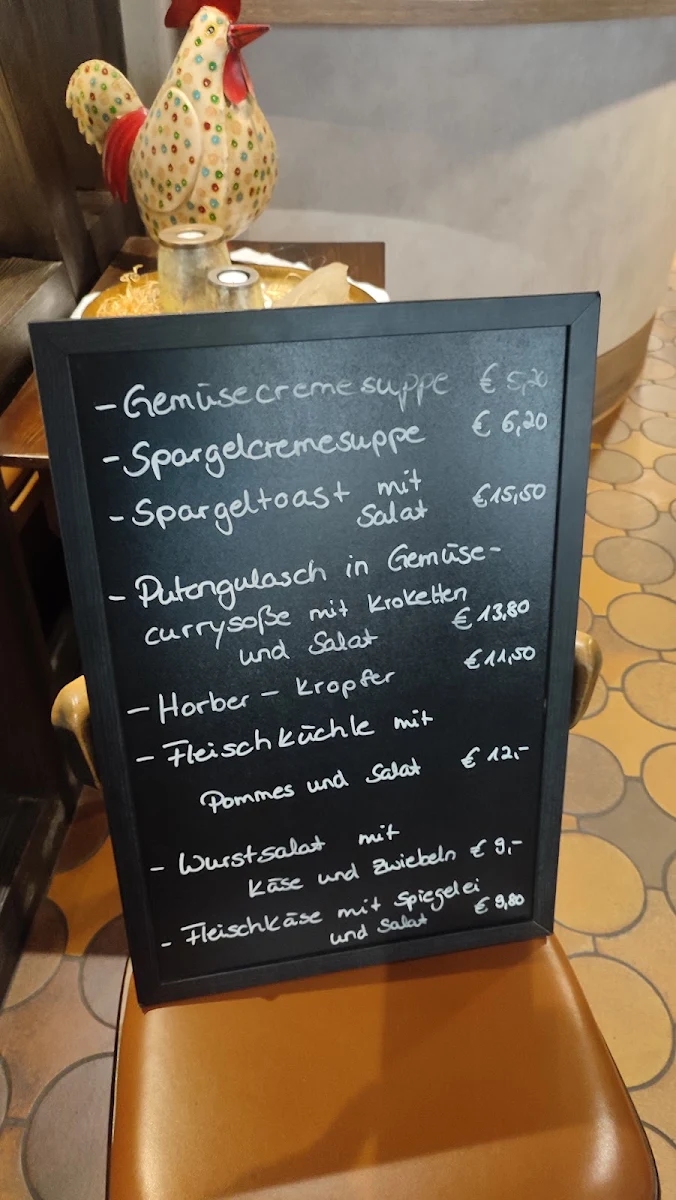 - Gemüsecremesuppe € 5,20
- Spargelcremesuppe € 6,20
- Spargeltoast mit
Salat €15,50
- Putengulasch in Gemüse-
currysoße mit Kroketten
und Salat € 13,80
- Horber - Kropfer €11,50
- Fleischküchle mit
Pommes und Salat € 12,-
- Wurstsalat mit
Käse und Zwiebeln € 9,-
- Fleischkäse mit Spiegelei
und Salat € 9,80